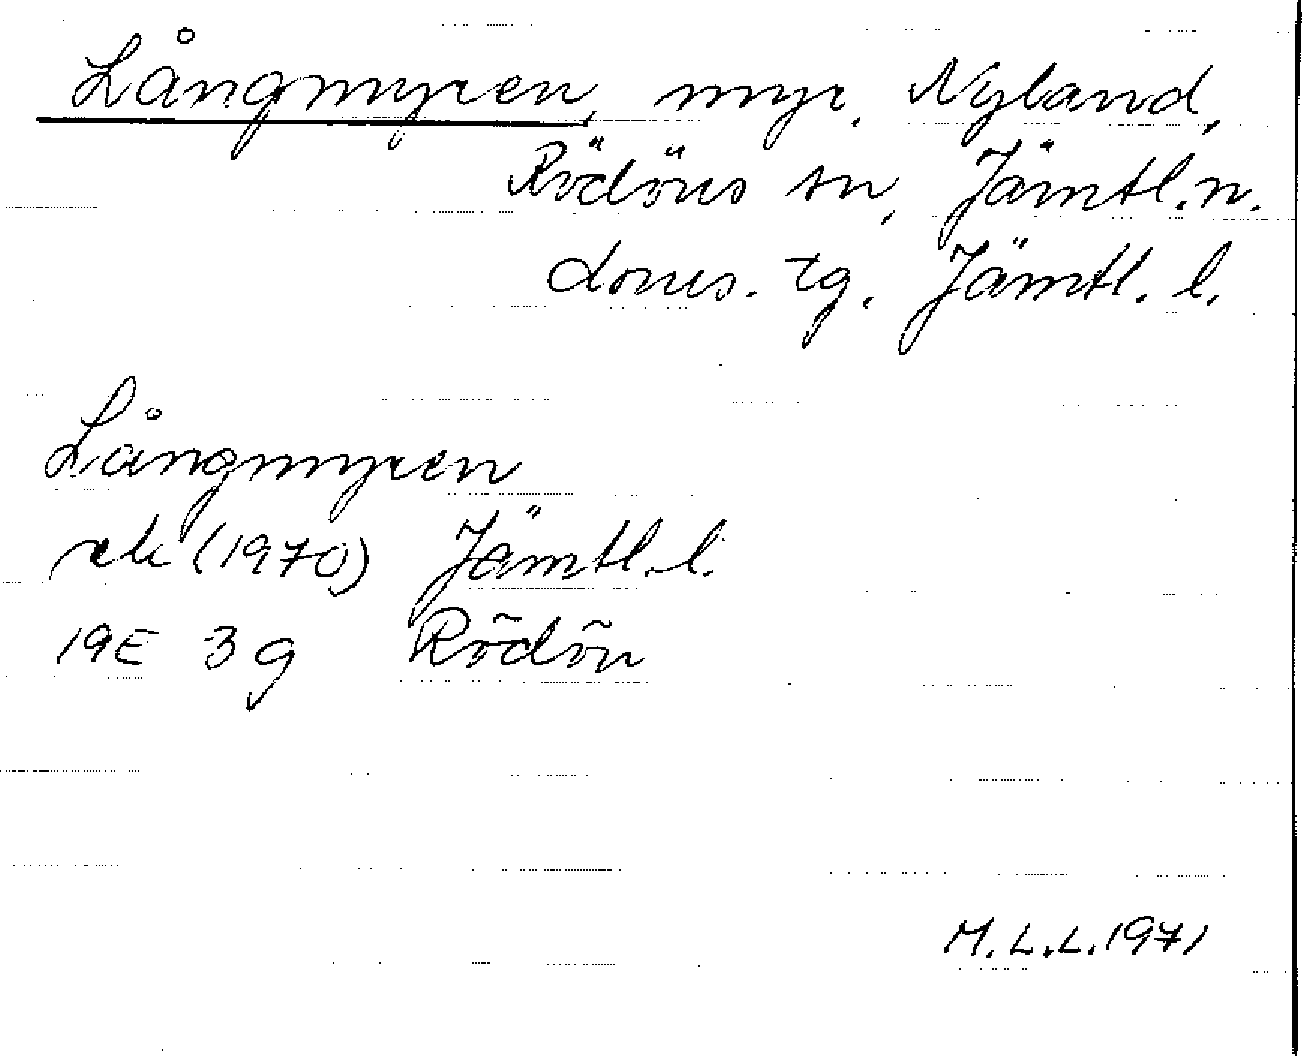 Långmyren, myr, Nyland,
Rödöns sn, Jämtl. n.
doms. tg. Jämtl. l.
Långmyren
rek (1970) Jämtl. l.
19E 3g Rödön
M.L.L. 1971